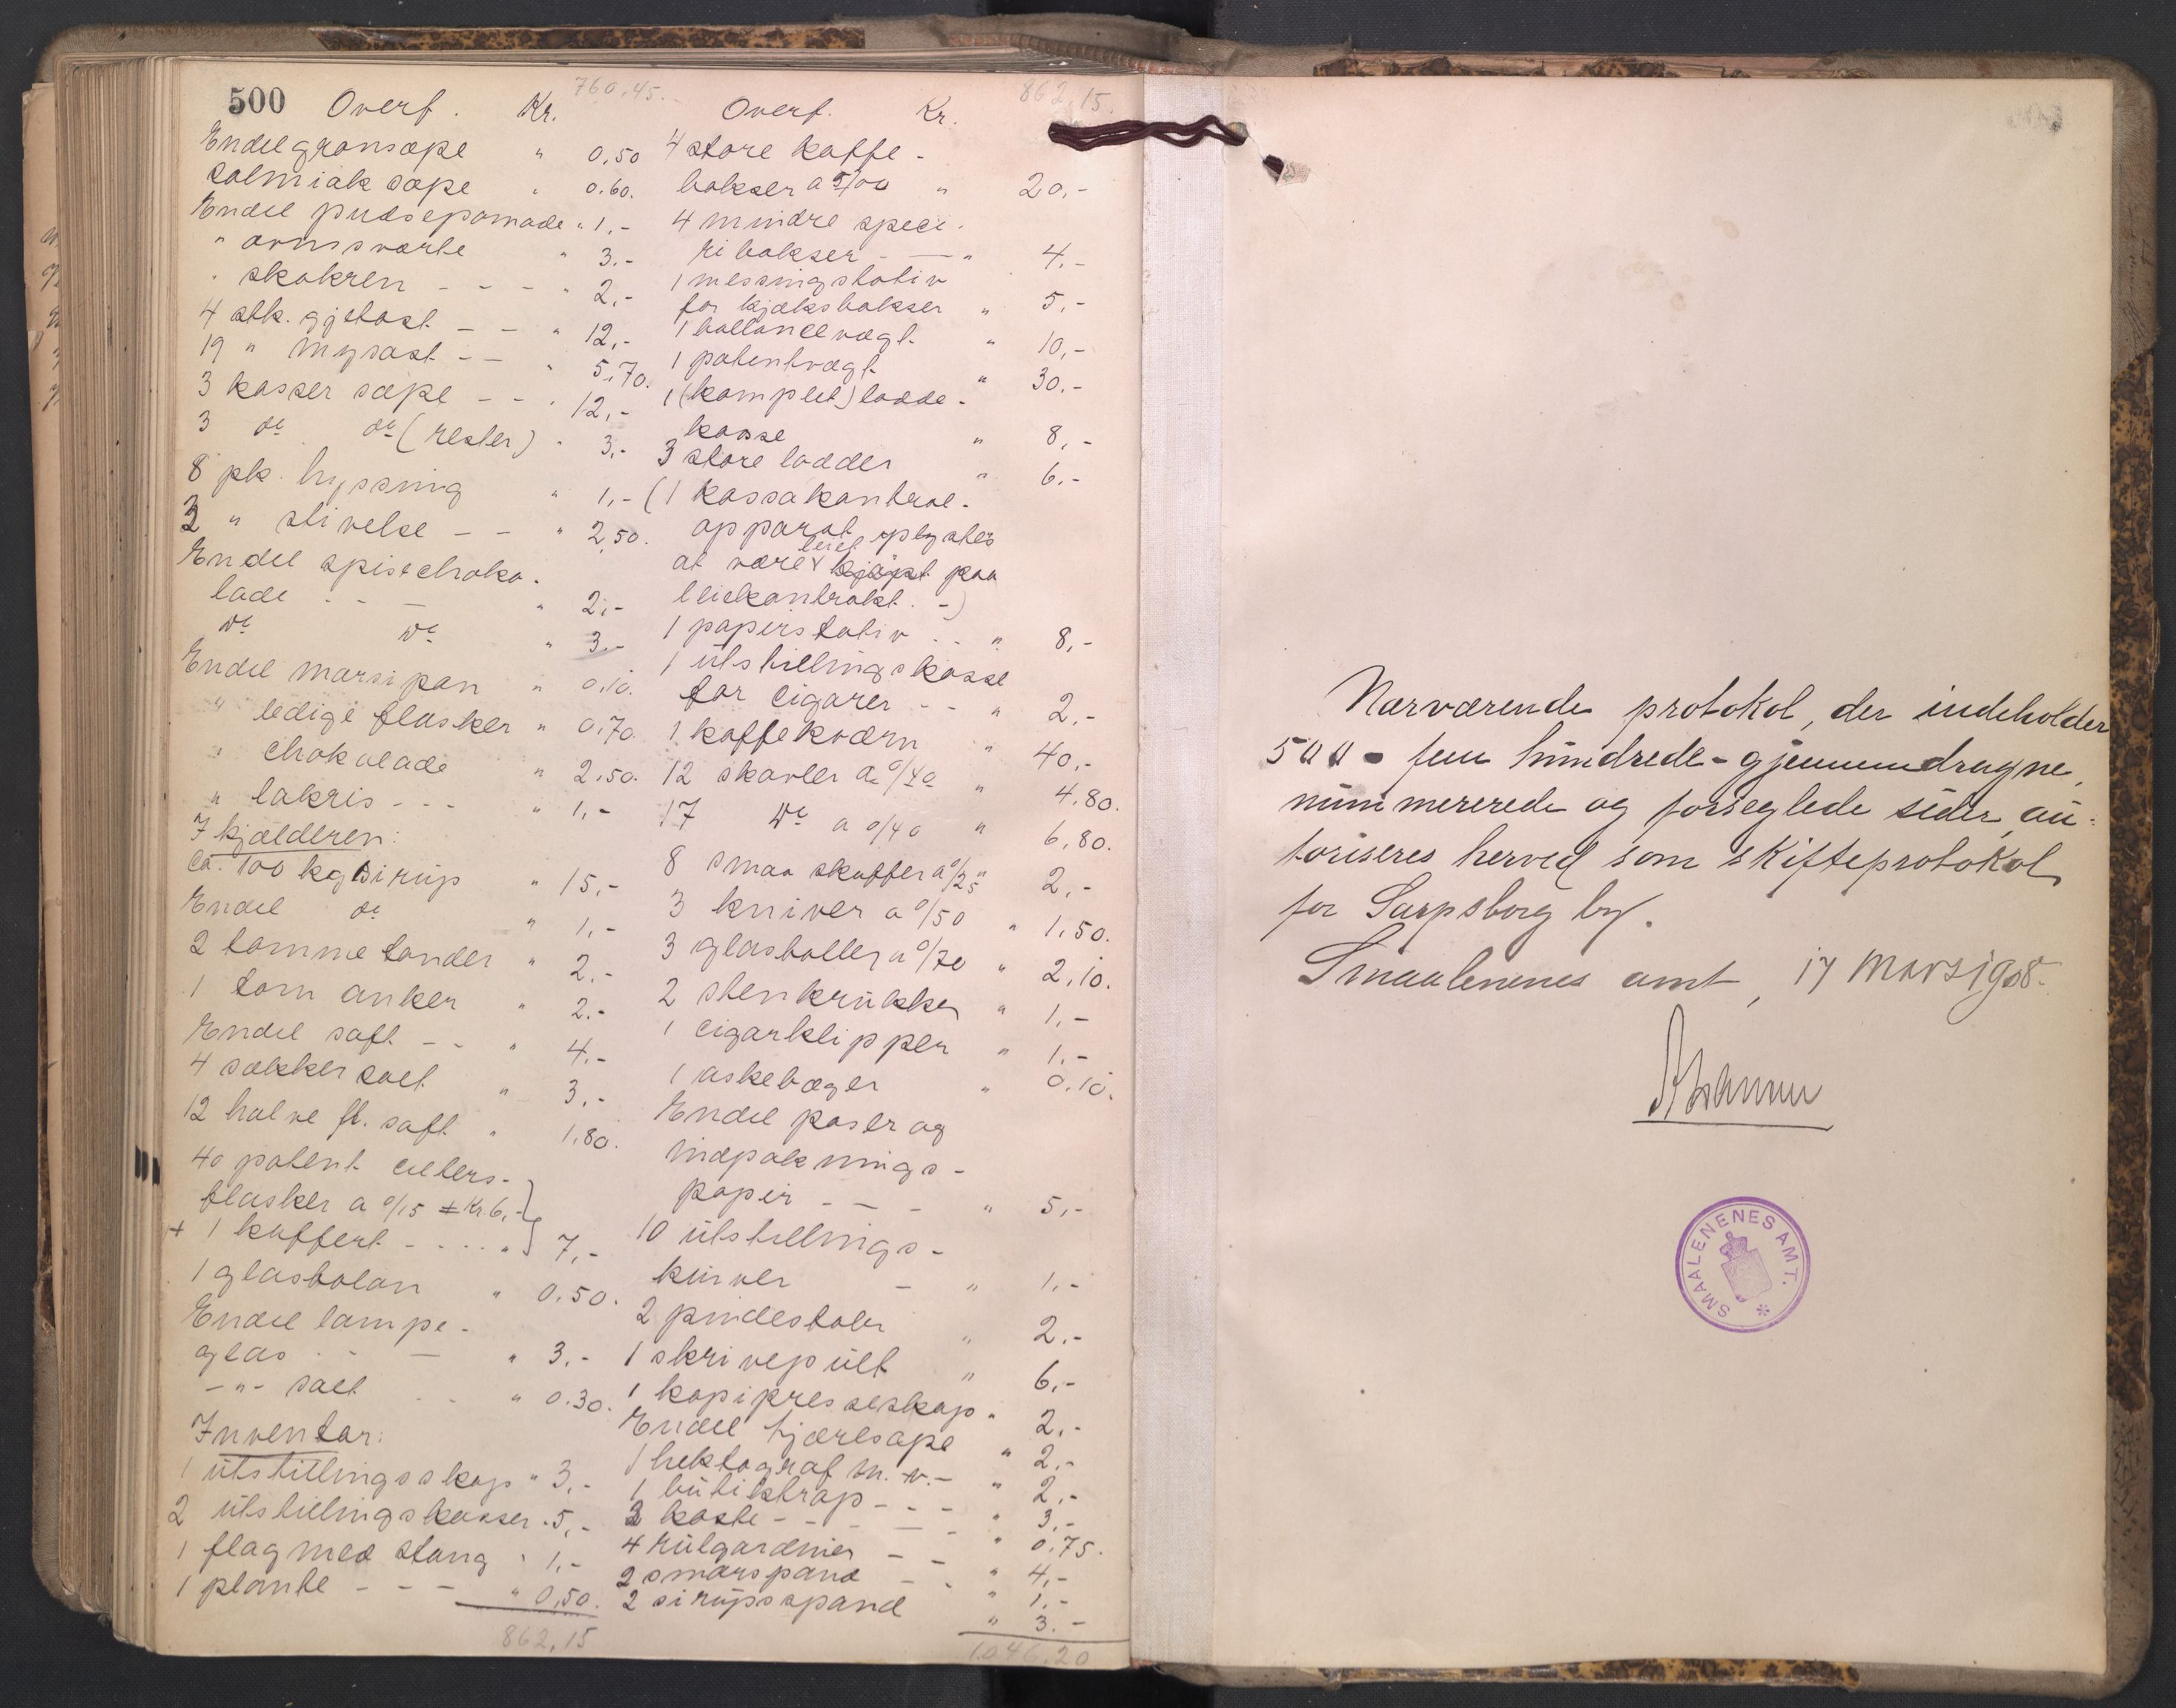 500 Overf. Kr. 760,45.
Endel grønsæpe " 0,50
Salmiak sæpe " 0.60.
Endel pudsepomade " 1,-
" ovnsværte " 3.-
" skokrem - - - " 2,-
4 stk. gjetost - - " 12,-
19 " mysost - - " 5,70.
3 kasser sæpe - - " 12,-
3 do do (rester) " 3,-
8 pk. hyssing " 1,-
3 " stivelse - - " 2,50.
Endel spisechoko-
lade - - - " 2,-
do do " 3.-
Endel marsipan " 0.10.
" ledige flasker " 0,70.
" chokolade " 2,50.
" lakris - - - " 1,-
I kjælderen:
ca. 100 kg sirup " 15,-
Endel do " 1,-
2 tomme tønder " 2,-
1 tom anker " 2.-
Endel saft - - " 4.-
4 sækker salt " 3,-
12 halve fl. saft " 1,80.
40 patent selters-
flasker a 0/15 = Kr. 6,-
+ 1 kuffert - - - " 7,-
1 glasbolan " 0.50.
Endel lampe-
glas - - " 3.-
- " - salt - - " 0.30.
Inventar:
1 utstillingsskap " 3,-
2 utstillingskasser " 5,-
1 flag med stang " 1,-
1 plante - - - " 0,50.
862,15
Overf. Kr. 862,15.
4 store kaffe-
bokser a 5/00 " 20,-
4 mindre spece-
ri bokser - - " 4.-
1 messingstativ
for kjæksbokser " 5,-
1 ballancevægt " 10,-
1 patentvægt " 30.-
1 (komplet) ladde-
kasse " 8,-
3 store ladder " 6.-
(1 kassakontrol-
apparat oplystes
at være leiet kjøpt paa
leiekontrakt. -)
1 papirstativ - - " 8,-
1 utstillingskasse
for cigarer - - " 2,-
1 kaffekværn " 40,-
12 skovler a 0/40 " 4.80.
17 do a 0/40 " 6,80.
8 smaa skuffer a 0/25 " 2,-
3 kniver a 0/50 " 1,50.
3 glasboller a 0/70 " 2,10.
2 stenkrukker " 1,-
1 cigarklipper " 1.-
1 askebæger " 0.10.
Endel poser og
indpaknings-
papir - - - " 5,-
10 utstillings-
kurver - " 1,-
2 pindestoler " 2.-
1 skrivepult " 6,-
1 kopipresseskap " 2,-
Endel tjæresæpe " 2,-
1 hektograf m. v. - " 2,-
1 butiktrap - - - " 3,-
2 koste - - - - " 0,75.
4 rulgardiner - - " 4,-
2 smørspand - - " 1,-
2 sirupsspand " 3.-
1.046.20
Nærværende protokol, der indeholder
500 - fem hundrede - gjennemdragne,
nummererede og forseglede sider, au-
toriseres herved som skifteprotokol
for Sarpsborg by.
Smaalenenes amt, 17 mars 1908.
SMAALENENES AMT.